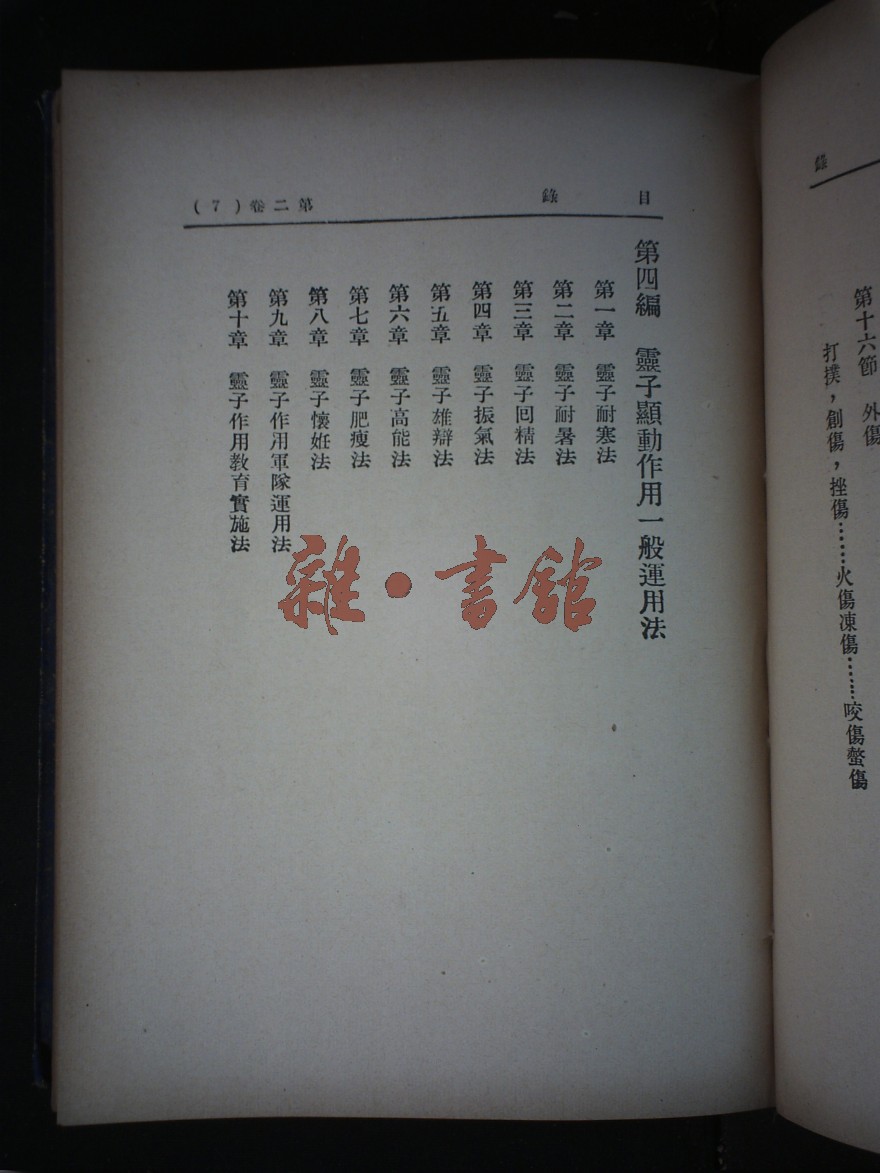 錄
第十六節　外傷
打撲，創傷，挫傷……火傷凍傷……咬傷螫傷
目　錄　第二卷（7）
第四編　靈子顯動作用一般運用法
第一章　靈子耐寒法
第二章　靈子耐暑法
第三章　靈子回精法
第四章　靈子振氣法
第五章　靈子雄辯法
第六章　靈子高能法
第七章　靈子肥瘦法
第八章　靈子懷妊法
第九章　靈子作用軍隊運用法
第十章　靈子作用教育實施法
雜·書館